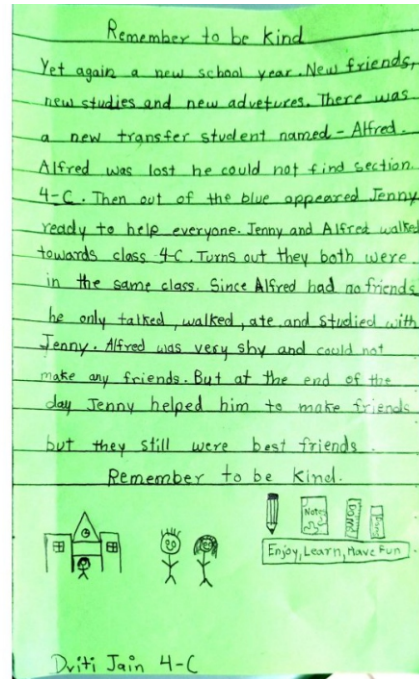 Remember to be kind
Yet again a new school year. New friends,
new studies and new advetures. There was
a new transfer student named - Alfred.
Alfred was lost he could not find section
4-C. Then out of the blue appeared Jenny
ready to help everyone. Jenny and Alfred walked
towards class 4-C. Turns out they both were
in the same class. Since Alfred had no friends
he only talked, walked, ate, and studied with
Jenny. Alfred was very shy and could not
make any friends. But at the end of the
day Jenny helped him to make friends
but they still were best friends.
Remember to be kind.
Notes
Enjoy, Learn, Have Fun
Dviti Jain 4-C